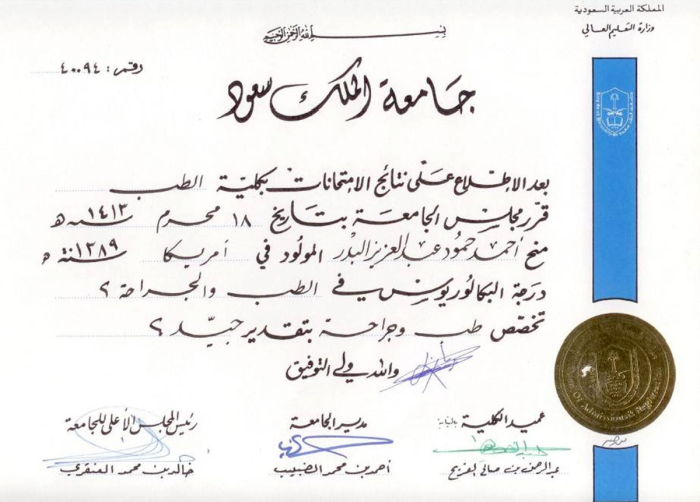 المملكة العربية السعودية
وزارة التعليم العالي
بسم الله الرحمن الرحيم
رقم : ٤٠٠٩٤
جامعة الملك سعود
بعد الإطلاع على نتائج الامتحانات بكلية الطب
قرر مجلس الجامعة بتاريخ ١٨ محرم سنة ١٤١٣ هـ
منح أحمد حمود عبدالعزيز البدر المولود في أمريكا سنة ١٣٨٩ هـ
درجة البكالوريوس في الطب والجراحة ؟
تخصص طب وجراحة بتقدير جيد ؟
والله ولي التوفيق
عميد الكلية بالنيابة
مدير الجامعة
رئيس المجلس الأعلى للجامعة
عبدالرحمن بن صالح الفريح
أحمد بن محمد الضبيب
خالد بن محمد العنقري